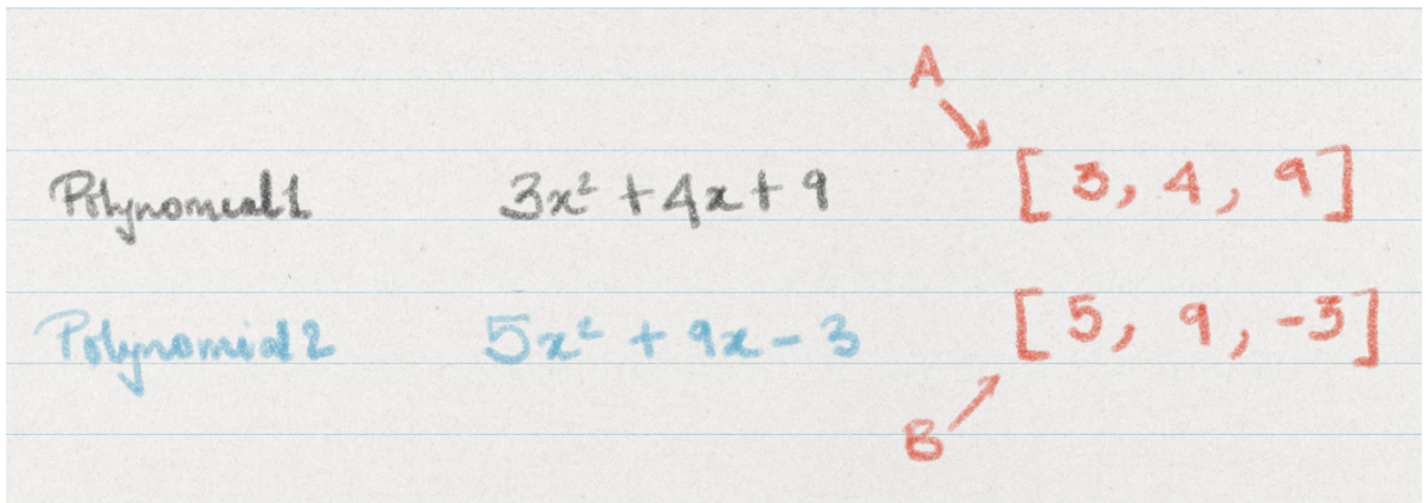 A
Polynomial1 3x² + 4x + 9 [ 3, 4, 9 ]
Polynomial2 5x² + 9x - 3 [ 5, 9, -3 ]
B